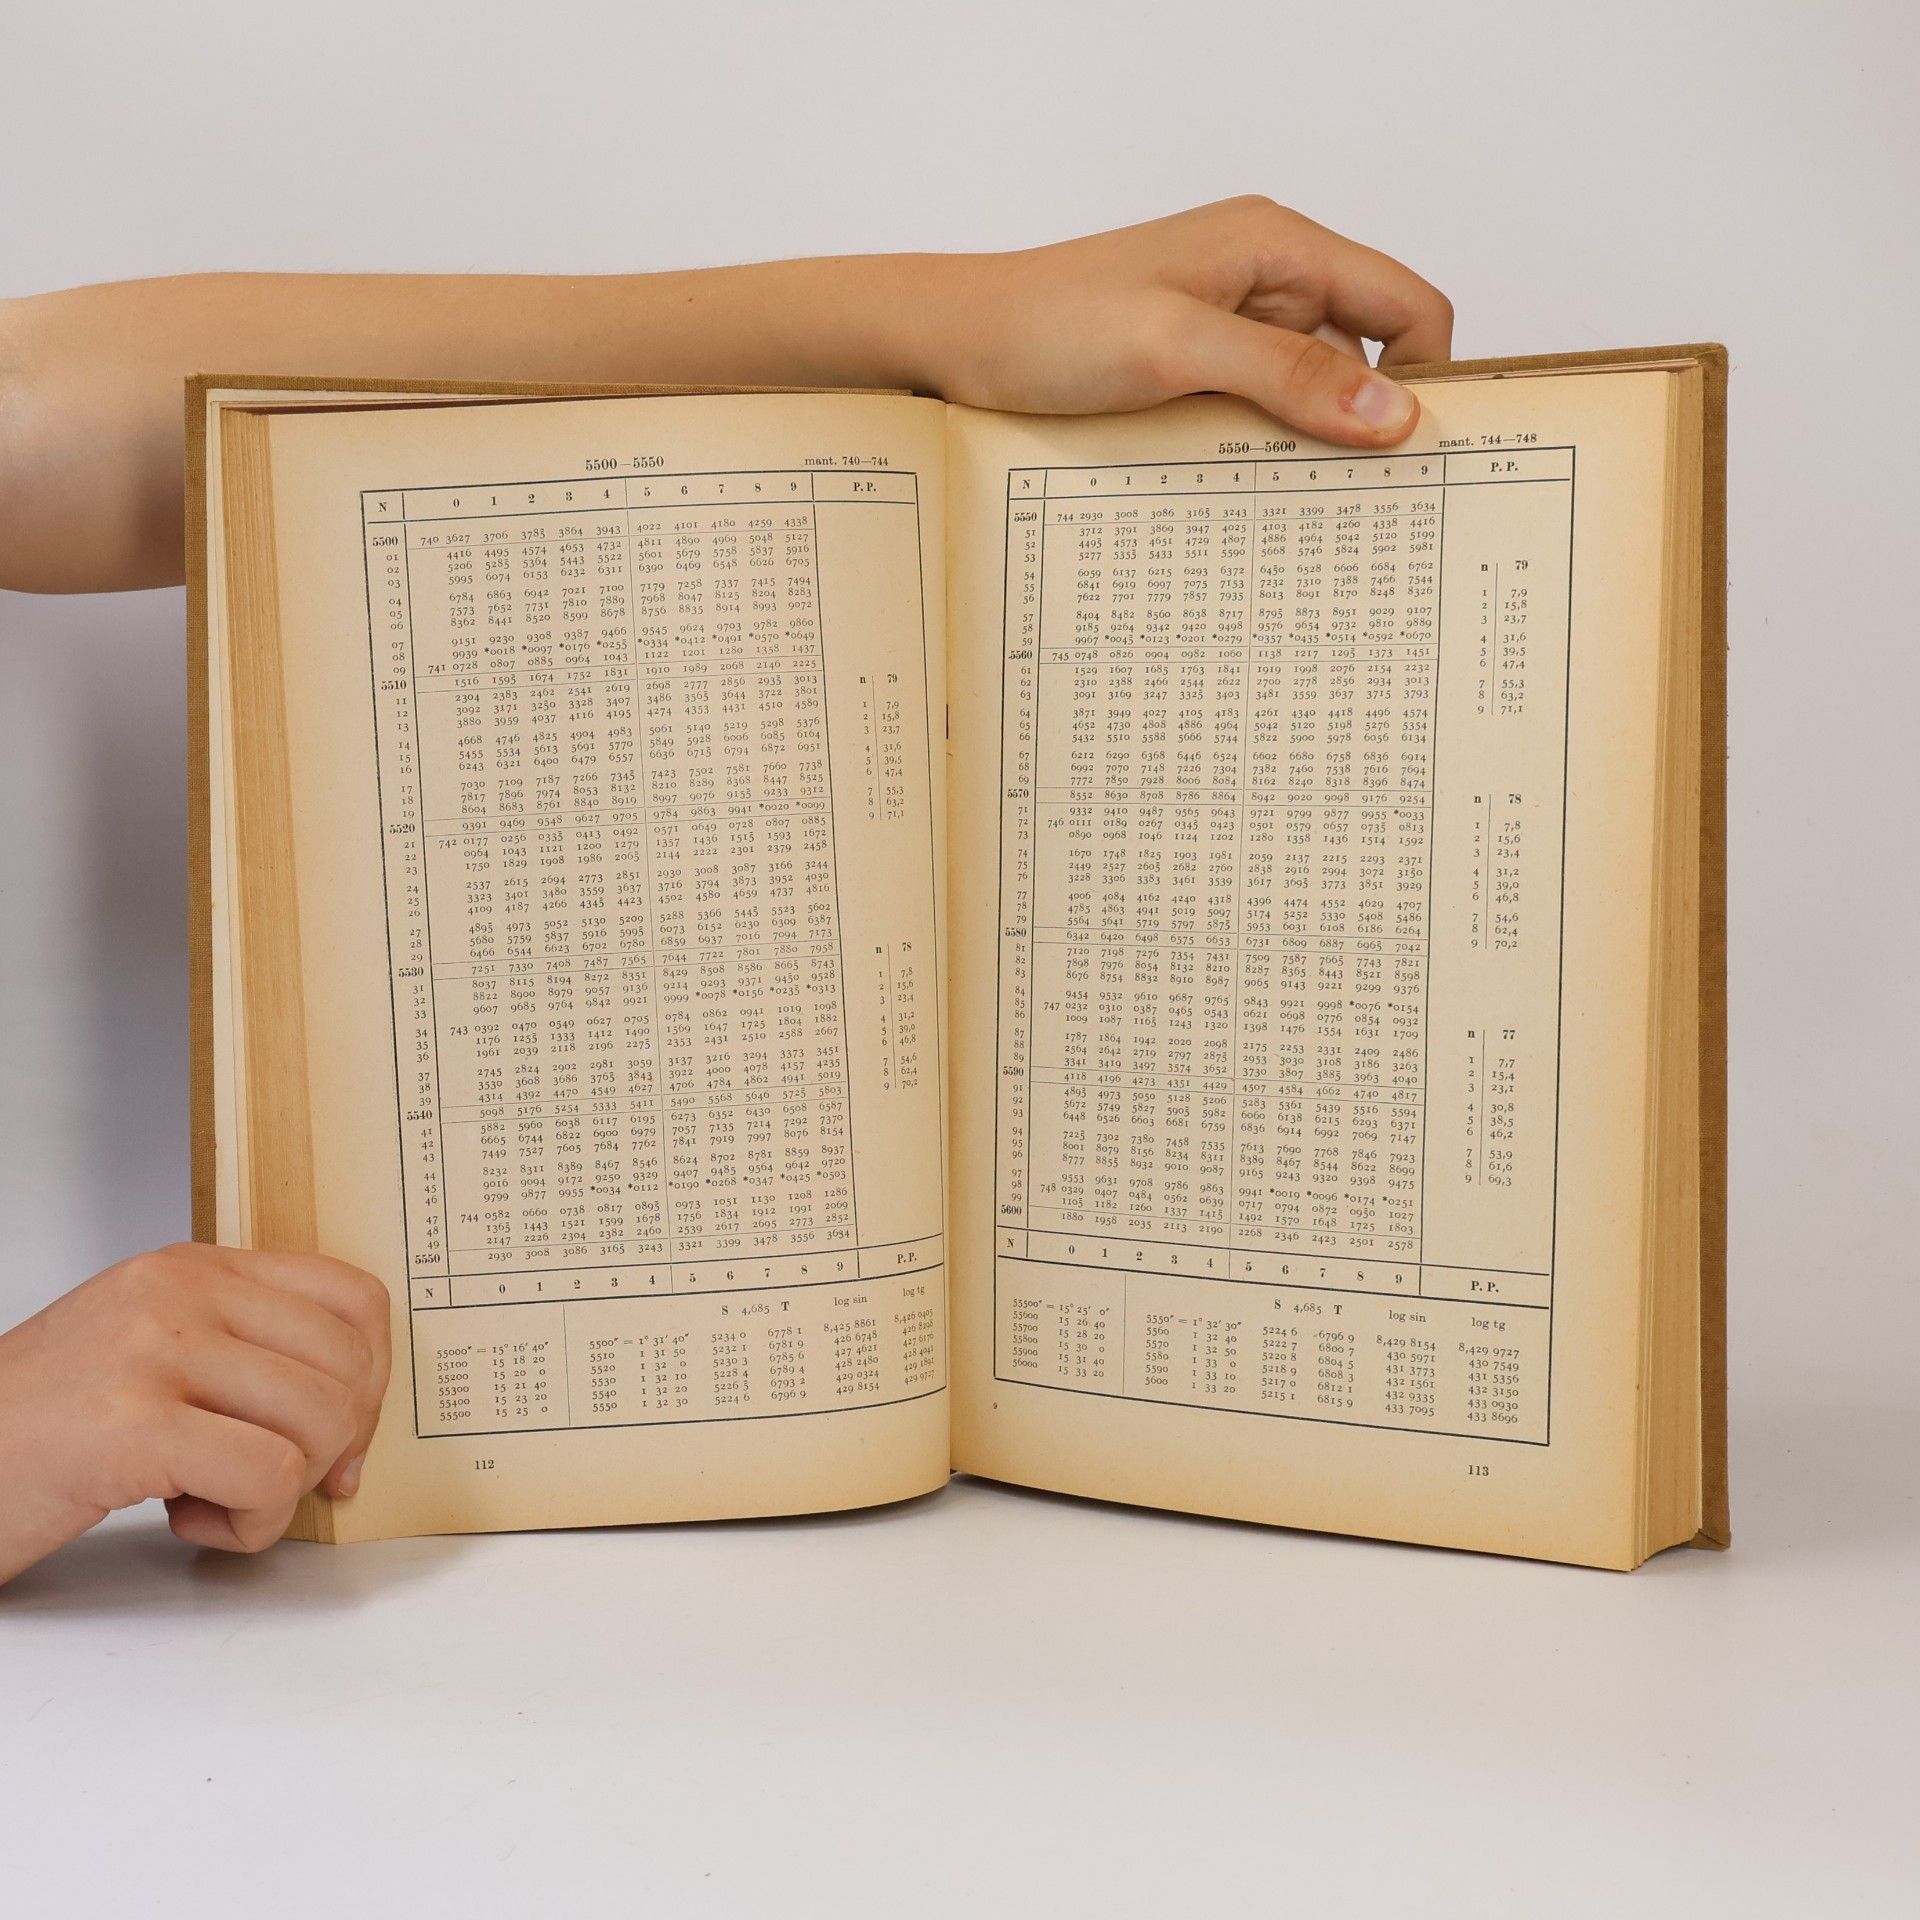 5500—5550 mant. 740—744
N 0 1 2 3 4 5 6 7 8 9 P. P.
5500 740 3627 3706 3785 3864 3943 4022 4101 4180 4259 4338
01 4416 4495 4574 4653 4732 4811 4890 4969 5048 5127
02 5206 5285 5364 5443 5522 5601 5679 5758 5837 5916
03 5995 6074 6153 6232 6311 6390 6469 6548 6626 6705
04 6784 6863 6942 7021 7100 7179 7258 7337 7415 7494
05 7573 7652 7731 7810 7889 7968 8047 8125 8204 8283
06 8362 8441 8520 8599 8678 8756 8835 8914 8993 9072
07 9151 9230 9308 9387 9466 9545 9624 9703 9782 9860
08 9939 *0018 *0097 *0176 *0255 *0334 *0412 *0491 *0570 *0649
09 741 0728 0807 0885 0964 1043 1122 1201 1280 1358 1437
5510 1516 1595 1674 1752 1831 1910 1989 2068 2146 2225
11 2304 2383 2462 2541 2619 2698 2777 2856 2935 3013
12 3092 3171 3250 3328 3407 3486 3565 3644 3722 3801
13 3880 3959 4037 4116 4195 4274 4353 4431 4510 4589
14 4668 4746 4825 4904 4983 5061 5140 5219 5298 5376
15 5455 5534 5613 5691 5770 5849 5928 6006 6085 6164
16 6243 6321 6400 6479 6557 6636 6715 6794 6872 6951
17 7030 7109 7187 7266 7345 7423 7502 7581 7660 7738
18 7817 7896 7974 8053 8132 8210 8289 8368 8447 8525
19 8604 8683 8761 8840 8919 8997 9076 9155 9233 9312
5520 9391 9469 9548 9627 9705 9784 9863 9941 *0020 *0099
21 742 0177 0256 0335 0413 0492 0571 0649 0728 0807 0885
22 0964 1043 1121 1200 1279 1357 1436 1515 1593 1672
23 1750 1829 1908 1986 2065 2144 2222 2301 2379 2458
24 2537 2615 2694 2773 2851 2930 3008 3087 3166 3244
25 3323 3401 3480 3559 3637 3716 3794 3873 3952 4030
26 4109 4187 4266 4345 4423 4502 4580 4659 4737 4816
27 4895 4973 5052 5130 5209 5288 5366 5445 5523 5602
28 5680 5759 5837 5916 5995 6073 6152 6230 6309 6387
29 6466 6544 6623 6702 6780 6859 6937 7016 7094 7173
5530 7251 7330 7408 7487 7565 7644 7722 7801 7880 7958
31 8037 8115 8194 8272 8351 8429 8508 8586 8665 8743
32 8822 8900 8979 9057 9136 9214 9293 9371 9450 9528
33 9607 9685 9764 9842 9921 9999 *0078 *0156 *0235 *0313
34 743 0392 0470 0549 0627 0705 0784 0862 0941 1019 1098
35 1176 1255 1333 1412 1490 1569 1647 1725 1804 1882
36 1961 2039 2118 2196 2275 2353 2431 2510 2588 2667
37 2745 2824 2902 2981 3059 3137 3216 3294 3373 3451
38 3530 3608 3686 3765 3843 3922 4000 4078 4157 4235
39 4314 4392 4470 4549 4627 4706 4784 4862 4941 5019
5540 5098 5176 5254 5333 5411 5490 5568 5646 5725 5803
41 5882 5960 6038 6117 6195 6273 6352 6430 6508 6587
42 6665 6744 6822 6900 6979 7057 7135 7214 7292 7370
43 7449 7527 7605 7684 7762 7841 7919 7997 8076 8154
44 8232 8311 8389 8467 8546 8624 8702 8781 8859 8937
45 9016 9094 9172 9250 9329 9407 9485 9564 9642 9720
46 9799 9877 9955 *0034 *0112 *0190 *0268 *0347 *0425 *0503
47 744 0582 0660 0738 0817 0895 0973 1051 1130 1208 1286
48 1365 1443 1521 1599 1678 1756 1834 1912 1991 2069
49 2147 2226 2304 2382 2460 2539 2617 2695 2773 2852
5550 2930 3008 3086 3165 3243 3321 3399 3478 3556 3634
n 79
1 7,9
2 15,8
3 23,7
4 31,6
5 39,5
6 47,4
7 55,3
8 63,2
9 71,1
n 78
1 7,8
2 15,6
3 23,4
4 31,2
5 39,0
6 46,8
7 54,6
8 62,4
9 70,2
N 0 1 2 3 4 5 6 7 8 9 P. P.
S 4,685 T log sin log tg
55000″ = 15° 16′ 40″ 5500″ = 1° 31′ 40″ 5234 0 6778 1 8,425 8861 8,426 0405
55100 15 18 20 5510 1 31 50 5232 1 6781 9 426 6748 426 8298
55200 15 20 0 5520 1 32 0 5230 3 6785 6 427 4621 427 6176
55300 15 21 40 5530 1 32 10 5228 4 6789 4 428 2480 428 4041
55400 15 23 20 5540 1 32 20 5226 5 6793 2 429 0324 429 1891
55500 15 25 0 5550 1 32 30 5224 6 6796 9 429 8154 429 9727
112
5550—5600 mant. 744—748
N 0 1 2 3 4 5 6 7 8 9 P. P.
5550 744 2930 3008 3086 3165 3243 3321 3399 3478 3556 3634
51 3712 3791 3869 3947 4025 4103 4182 4260 4338 4416
52 4495 4573 4651 4729 4807 4886 4964 5042 5120 5199
53 5277 5355 5433 5511 5590 5668 5746 5824 5902 5981
54 6059 6137 6215 6293 6372 6450 6528 6606 6684 6762
55 6841 6919 6997 7075 7153 7232 7310 7388 7466 7544
56 7622 7701 7779 7857 7935 8013 8091 8170 8248 8326
57 8404 8482 8560 8638 8717 8795 8873 8951 9029 9107
58 9185 9264 9342 9420 9498 9576 9654 9732 9810 9889
59 9967 *0045 *0123 *0201 *0279 *0357 *0435 *0514 *0592 *0670
5560 745 0748 0826 0904 0982 1060 1138 1217 1295 1373 1451
61 1529 1607 1685 1763 1841 1919 1998 2076 2154 2232
62 2310 2388 2466 2544 2622 2700 2778 2856 2934 3013
63 3091 3169 3247 3325 3403 3481 3559 3637 3715 3793
64 3871 3949 4027 4105 4183 4261 4340 4418 4496 4574
65 4652 4730 4808 4886 4964 5042 5120 5198 5276 5354
66 5432 5510 5588 5666 5744 5822 5900 5978 6056 6134
67 6212 6290 6368 6446 6524 6602 6680 6758 6836 6914
68 6992 7070 7148 7226 7304 7382 7460 7538 7616 7694
69 7772 7850 7928 8006 8084 8162 8240 8318 8396 8474
5570 8552 8630 8708 8786 8864 8942 9020 9098 9176 9254
71 9332 9410 9487 9565 9643 9721 9799 9877 9955 *0033
72 746 0111 0189 0267 0345 0423 0501 0579 0657 0735 0813
73 0890 0968 1046 1124 1202 1280 1358 1436 1514 1592
74 1670 1748 1825 1903 1981 2059 2137 2215 2293 2371
75 2449 2527 2605 2682 2760 2838 2916 2994 3072 3150
76 3228 3306 3383 3461 3539 3617 3695 3773 3851 3929
77 4006 4084 4162 4240 4318 4396 4474 4552 4629 4707
78 4785 4863 4941 5019 5097 5174 5252 5330 5408 5486
79 5564 5641 5719 5797 5875 5953 6031 6108 6186 6264
5580 6342 6420 6498 6575 6653 6731 6809 6887 6965 7042
81 7120 7198 7276 7354 7431 7509 7587 7665 7743 7821
82 7898 7976 8054 8132 8210 8287 8365 8443 8521 8598
83 8676 8754 8832 8910 8987 9065 9143 9221 9299 9376
84 9454 9532 9610 9687 9765 9843 9921 9998 *0076 *0154
85 747 0232 0310 0387 0465 0543 0621 0698 0776 0854 0932
86 1009 1087 1165 1243 1320 1398 1476 1554 1631 1709
87 1787 1864 1942 2020 2098 2175 2253 2331 2409 2486
88 2564 2642 2719 2797 2875 2953 3030 3108 3186 3263
89 3341 3419 3497 3574 3652 3730 3807 3885 3963 4040
5590 4118 4196 4273 4351 4429 4507 4584 4662 4740 4817
91 4895 4973 5050 5128 5206 5283 5361 5439 5516 5594
92 5672 5749 5827 5905 5982 6060 6138 6215 6293 6371
93 6448 6526 6603 6681 6759 6836 6914 6992 7069 7147
94 7225 7302 7380 7458 7535 7613 7690 7768 7846 7923
95 8001 8079 8156 8234 8311 8389 8467 8544 8622 8699
96 8777 8855 8932 9010 9087 9165 9243 9320 9398 9475
97 9553 9631 9708 9786 9863 9941 *0019 *0096 *0174 *0251
98 748 0329 0407 0484 0562 0639 0717 0794 0872 0950 1027
99 1105 1182 1260 1337 1415 1492 1570 1648 1725 1803
5600 1880 1958 2035 2113 2190 2268 2346 2423 2501 2578
n 79
1 7,9
2 15,8
3 23,7
4 31,6
5 39,5
6 47,4
7 55,3
8 63,2
9 71,1
n 78
1 7,8
2 15,6
3 23,4
4 31,2
5 39,0
6 46,8
7 54,6
8 62,4
9 70,2
n 77
1 7,7
2 15,4
3 23,1
4 30,8
5 38,5
6 46,2
7 53,9
8 61,6
9 69,3
N 0 1 2 3 4 5 6 7 8 9 P. P.
S 4,685 T log sin log tg
55500″ = 15° 25′ 0″ 5550″ = 1° 32′ 30″ 5224 6 6796 9 8,429 8154 8,429 9727
55600 15 26 40 5560 1 32 40 5222 7 6800 7 430 5971 430 7549
55700 15 28 20 5570 1 32 50 5220 8 6804 5 431 3773 431 5356
55800 15 30 0 5580 1 33 0 5218 9 6808 3 432 1561 432 3150
55900 15 31 40 5590 1 33 10 5217 0 6812 1 432 9335 433 0930
56000 15 33 20 5600 1 33 20 5215 1 6815 9 433 7095 433 8696
9
113